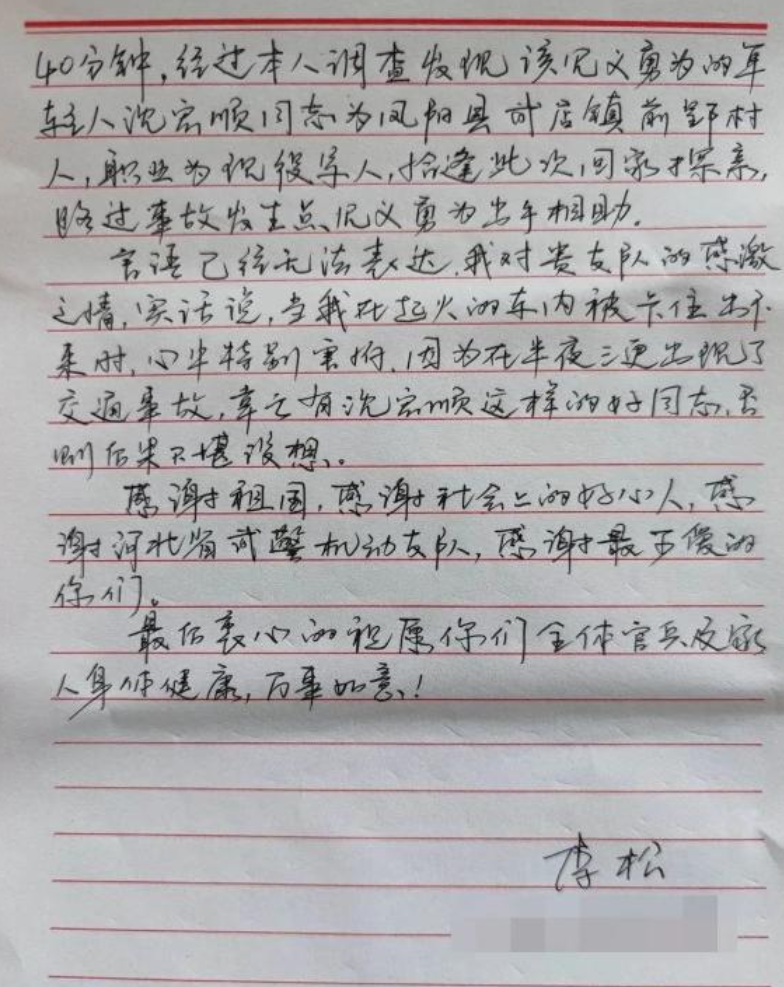 40分钟，经过本人调查发现该见义勇为的年
轻人沈宏顺同志为凤阳县武店镇前郢村
人，职业为现役军人，恰逢此次，回家探亲，
路过事故发生点、见义勇为出手相助。
言语已经无法表达，我对贵支队的感激
之情，实话说，当我在起火的车内被卡住出不
来时，心中特别害怕，因为在半夜三更出现了
交通事故，幸亏有沈宏顺这样的好同志，否
则后果不堪设想。
感谢祖国，感谢社会上的好心人，感
谢河北省武警机动支队，感谢最可爱的
你们。
最后衷心的祝愿你们全体官兵及家
人身体健康，万事如意！
李松